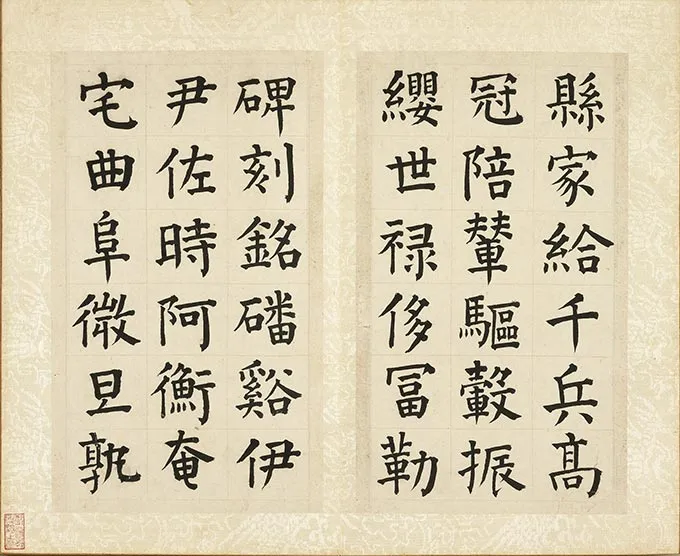 縣家給千兵髙
冠陪輦驅轂振
纓世禄侈冨勒
碑刻銘磻谿伊
尹佐時阿衡奄
宅曲阜微旦孰